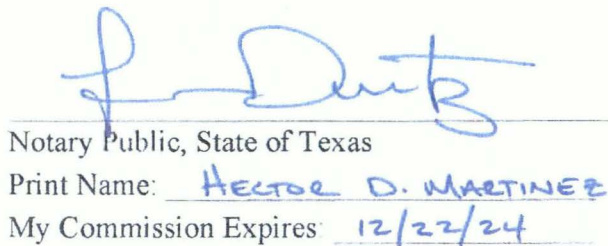 Notary Public, State of Texas
Print Name: HECTOR D. MARTINEZ
My Commission Expires: 12/22/24